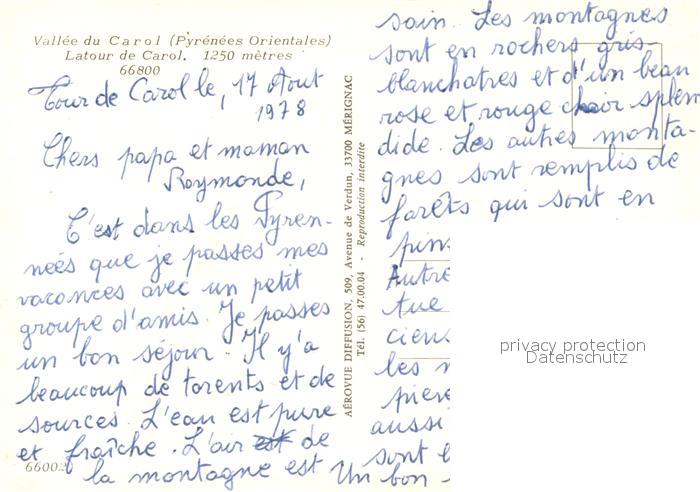 Vallée du Carol (Pyrénées Orientales)
Latour de Carol. 1250 mètres
66800
Tour de Carol le, 17 Aout
1978
Chers papa et maman
Raymonde,
C'est dans les Pyren-
neés que je passes mes
vacances avec un petit
groupe d'amis. Je passes
un bon séjour. Il y'a
beaucoup de torents et de
sources. L'eau est pure
et fraîche. L'air est de
la montagne est
660020
AÉROVUE DIFFUSION, 509, Avenue de Verdun, 33700 MÉRIGNAC
Tél. (56) 47.00.04 - Reproduction interdite
sain. Les montagnes
sont en rochers gris-
blanchatres et d'un beau
rose et rouge chair splen
dide. Les autres monta-
gnes sont remplis de
farêts qui sont en
pins
Autre
tue
ciens
les m
piere
aussi
sont l
Un bon -
privacy protection
Datenschutz